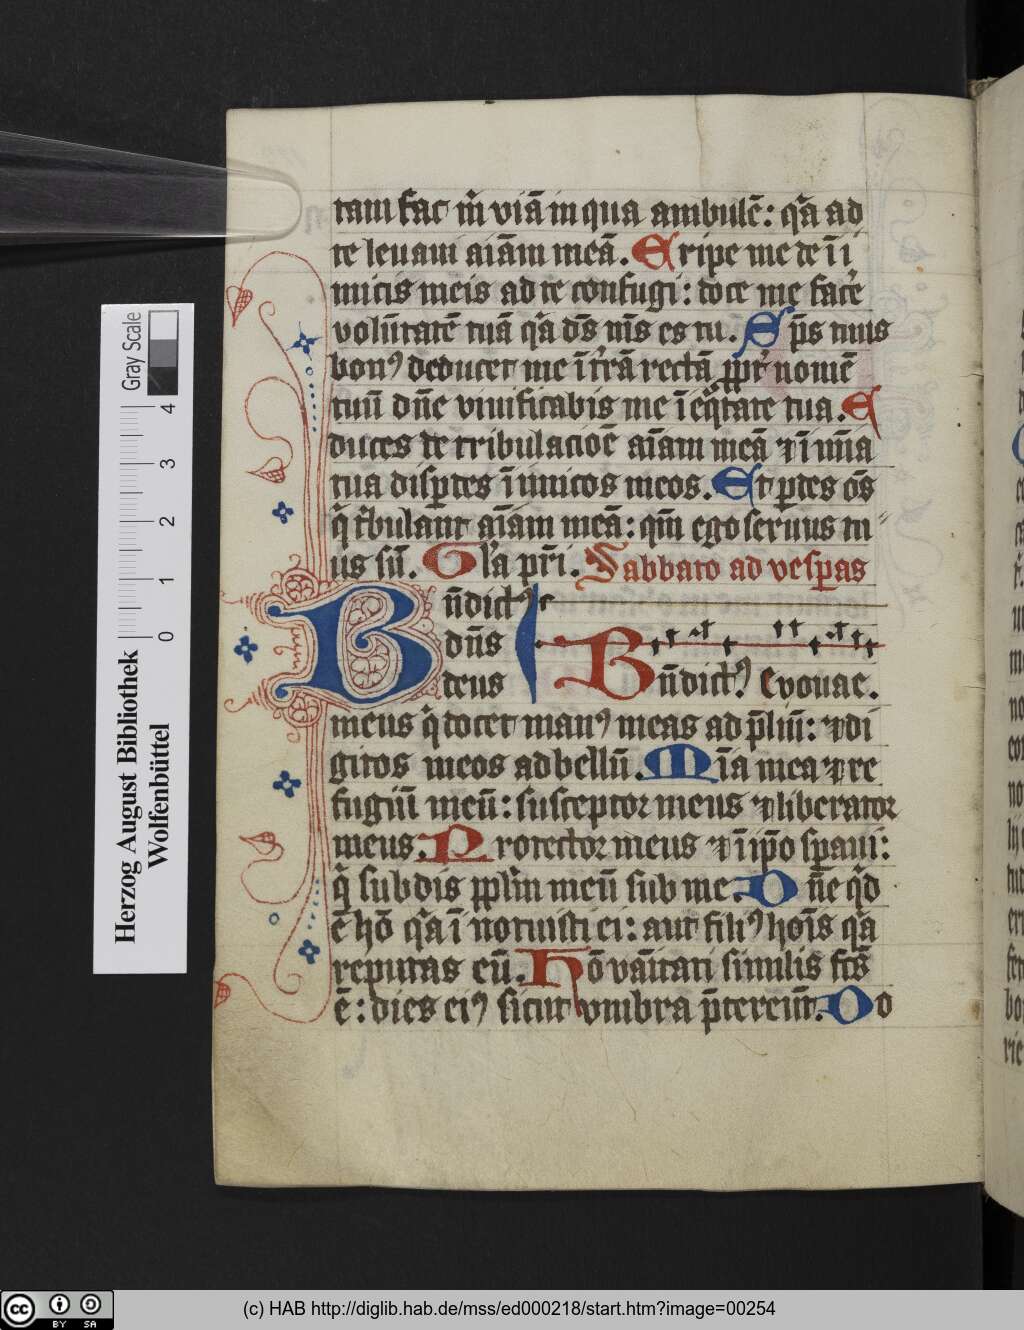 tam fac m̄ viā in qua ambulē: q̄a ad
te leuaui aīām meā. Eripe me de īi
micis meis ad te confugi: doce me fac̉e
volūtatē tuā q̄a dūs mūs es tu. Sp̄s tuus
bonꝰ deducet me ī t̉rā rectā ꝓpt̉ nomē
tuū dn̄e viuificabis me ī eq̄tate tua. E
duces de tribulacōe aīam meā ⁊ ī mīa
tua disꝑdes īimicos meos. Et ꝑdes oēs
q̄ t̉bulant aīam meā: qm̄ ego seruus tu
us sū. Gl̄a pr̄i. Sabbato ad vesꝑas
Bn̄dictꝰ
dn̄s
deus
Bn̄dictꝰ Evouae.
meus q̄ docet manꝰ meas ad p̄liū: ⁊ di
gitos meos ad bellū. Mīa mea ⁊ re
fugiū meū: susceptor meus ⁊ liberator
meus. Protector meus ⁊ ī ip̄o sꝑaui:
q̄ subdis pp̄l'm meū sub me. Dn̄e q̄d
ē hō q̄a īnotuisti ei: aut filiꝰ hoīs q̄a
reputas eū. Hō vāitati similis fc̄s
ē: dies eiꝰ sicut vmbra p̄tereūt. Do
Herzog August Bibliothek
Wolfenbüttel
Gray Scale
0 1 2 3 4
cc BY SA
(c) HAB http://diglib.hab.de/mss/ed000218/start.htm?image=00254